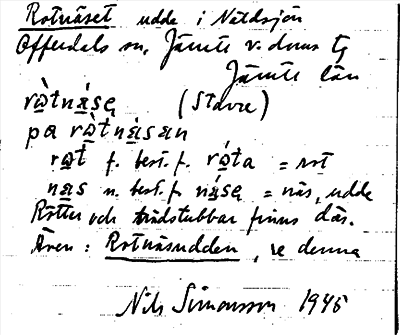 Rotnäset udde i Nätdsjön
Offerdals sn, Jämtl. v. domss tg
Jämtl. län
rò̱tnä̱sę (Stavre)
på rò̱tnä̱san
ro̱t f. best. f. ró̱ta = rot
nä̱s n. best. f. nä́sę = näs, udde
Rötter och trädstubbar finns där.
Även: Rotnäsudden, se denna
Nils Simonsson 1945